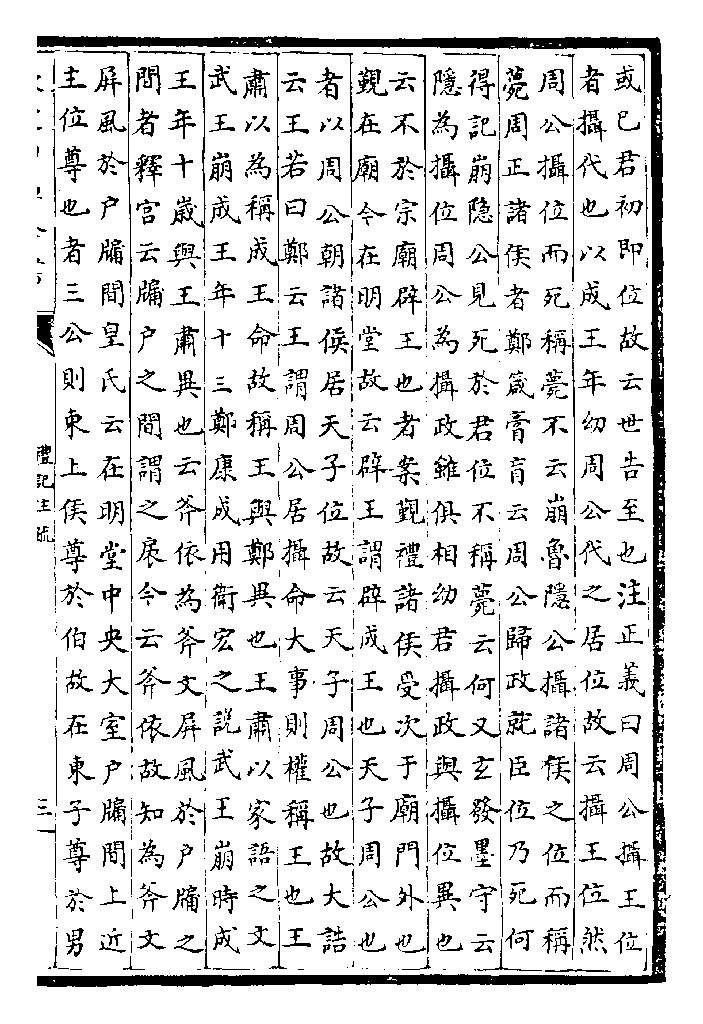 或已君初即位故云世告至也注正義曰周公攝王位
者攝代也以成王年幼周公代之居位故云攝王位然
周公攝位而死稱薨不云崩魯隱公攝諸侯之位而稱
薨周正諸侯者鄭箴膏肓云周公歸政就臣位乃死何
得記崩隐公見死於君位不稱薨云何又玄發墨守云
隱為攝位周公為攝政雖俱相幼君攝政與攝位異也
云不於宗廟辟王也者案覲禮諸侯受次于廟門外也
覲在廟今在明堂故云辟王謂辟成王也天子周公也
者以周公朝諸侯居天子位故云天子周公也故大誥
云王若曰鄭云王謂周公居攝命大事則權稱王也王
肅以為稱成王命故稱王與鄭異也王肅以家語之文
武王崩成王年十三鄭康成用衛宏之說武王崩時成
王年十歲與王肅異也云斧依為斧文屏風於户牖之
間者釋宫云牖户之間謂之扆今云斧依故知為斧文
屏風於户牖間皇氏云在明堂中央大室户牖間上近
主位尊也者三公則東上侯尊於伯故在東子尊於男
禮記注疏
三